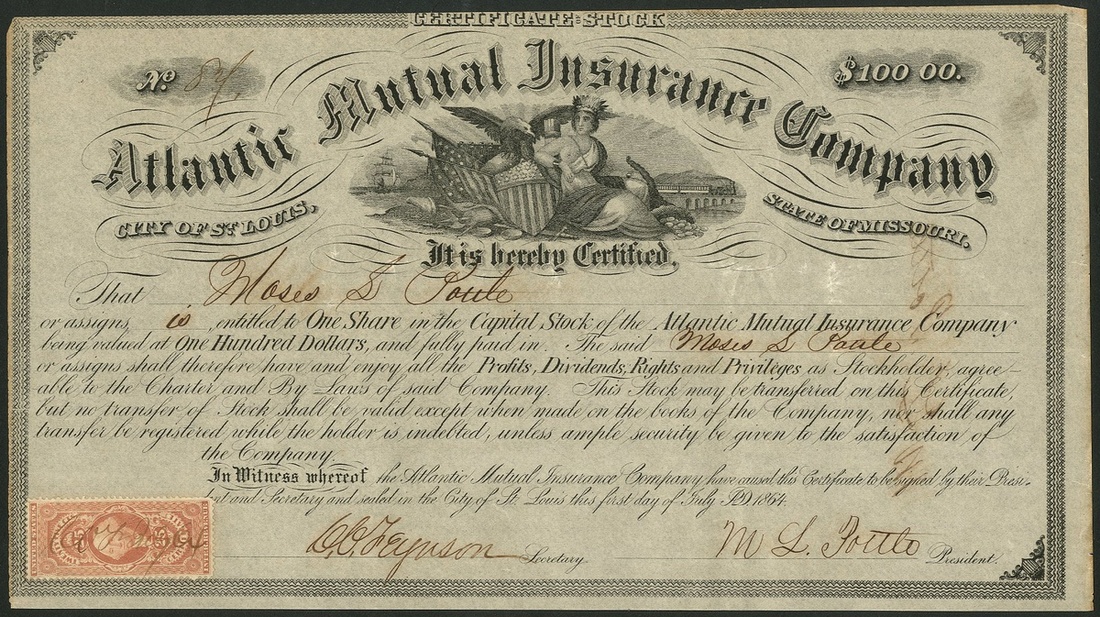 CERTIFICATE OF STOCK
No. 84
$100 00.
Atlantic Mutual Insurance Company
CITY OF ST LOUIS,
STATE OF MISSOURI.
It is hereby Certified,
That Moses L Pottle
or assigns, is, entitled to One Share in the Capital Stock of the Atlantic Mutual Insurance Company
being valued at One Hundred Dollars, and fully paid in. The said Moses L Pottle
or assigns shall therefore have and enjoy all the Profits, Dividends, Rights and Privileges as Stockholder, agree-
able to the Charter and By Laws of said Company. This Stock may be transferred on this Certificate,
but no transfer of Stock shall be valid except when made on the books of the Company, nor shall any
transfer be registered while the holder is indebted, unless ample security be given to the satisfaction of
the Company.
In Witness whereof the Atlantic Mutual Insurance Company have caused this Certificate to be signed by their Presi-
dent and Secretary and sealed in the City of St. Louis this first day of July A.D. 1864.
O.C. Ferguson Secretary
M L Pottle President.